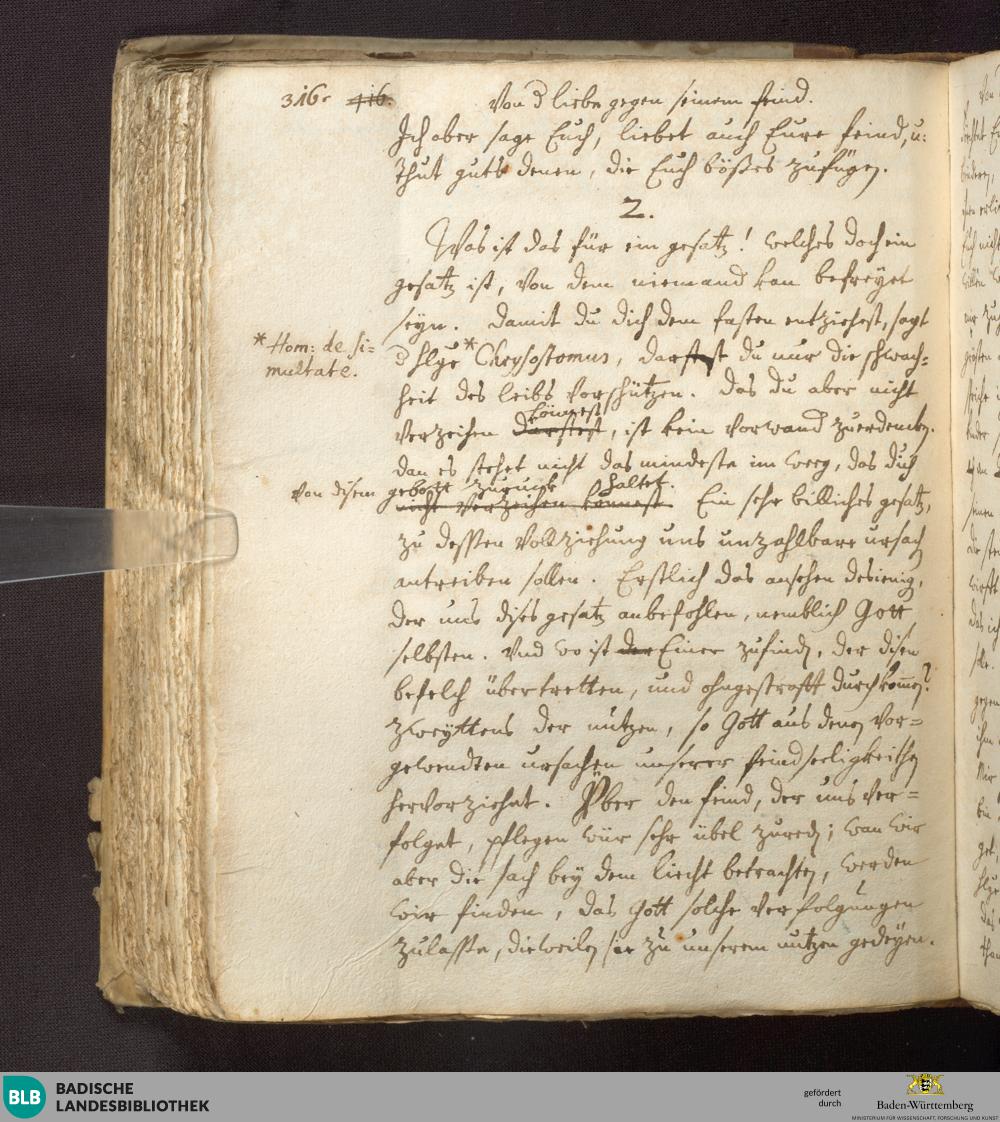 316. 416. Von d liebe gegen seinem feind.
Ich aber sage Euch, liebet auch Eure feind, u:
thut guts denen, die Euch bößes zufügen.
2.
Was ist das für ein gesatz! welches doch ein
gesatz ist, von dem niemand kan befreyet
seyn. damit du dich dem fasten entziehest, sagt
* Hom: de si=
multate.
d hlge * Chrysostomus, darfst du nur die schwach=
heit des leibs vorschützen. das du aber nicht
könnest
verzeihen darfst, ist kein vorwand zuerdencken.
dan es stehet nicht das mindeste im weeg, das dich
von disem gebott zuruck haltet.
nicht verzeihen könnest. Ein sehr billiches gesatz,
zu dessten vollziehung uns unzahlbare ursach
antreiben sollen. Erstlich das ansehen desienig,
der uns dises gesatz anbefohlen, nemblich Gott
selbsten. Und wo ist der Einer zufinden, der disen
befelch übertretten, und ohngestrafft durchkommen?
zweyttens der nutzen, so Gott aus denen vor=
gewendten ursachen unserer feindseeligkeithen
hervorziehet. Über den feind, der uns ver=
folget, pflegen wür sehr übel zureden; wan wir
aber die sach bey dem liecht betrachten, werden
wir finden, das Gott solche verfolgungen
zulasse, dieweilen sie zu unserem nutzen gedeyen.
BLB BADISCHE
LANDESBIBLIOTHEK
gefördert
durch
Baden-Württemberg
MINISTERIUM FÜR WISSENSCHAFT, FORSCHUNG UND KUNST